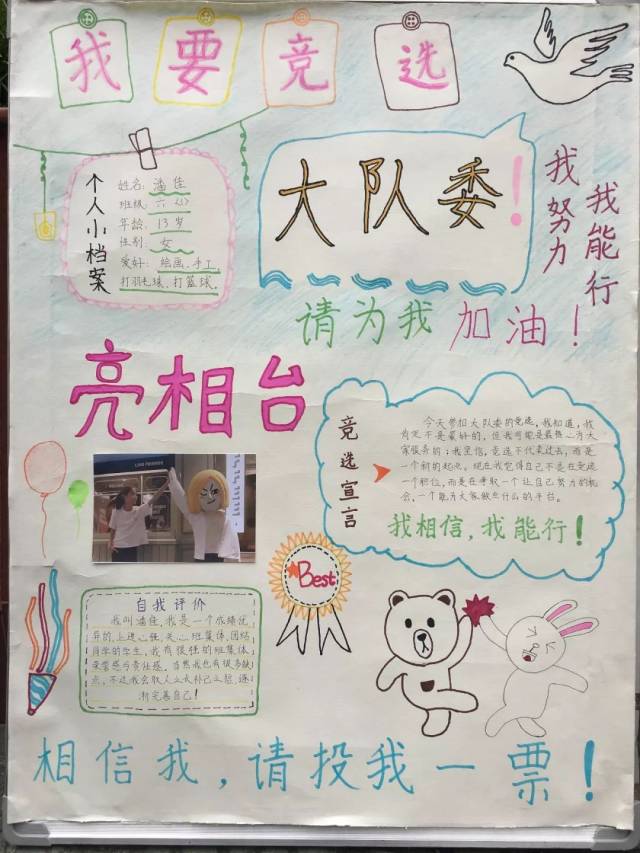 我要竞选
个人小档案
姓名：潘佳
班级：六（1）
年龄：13岁
性别：女
爱好：绘画、手工、
打羽毛球、打篮球.
大队委！
我努力
我能行
请为我加油！
亮相台
竞选宣言
今天参加大队委的竞选，我知道，我
肯定不是最好的，但我可能是最热心为大
家服务的；我坚信，竞选不代表过去，而是
一个新的起点，现在我觉得自己不是在竞选
一个职位，而是在争取一个让自己努力的机
会，一个能为大家做些什么的平台。
我相信，我能行！
LINE FRIENDS
Best
自我评价
我叫潘佳，我是一个成绩优
异的，上进心强，关心班集体，团结
同学的学生，我有很强的班集体
荣誉感与责任感。当然我也有很多缺
点，不过我会取人之长补己之短，逐
渐完善自己！
相信我，请投我一票！